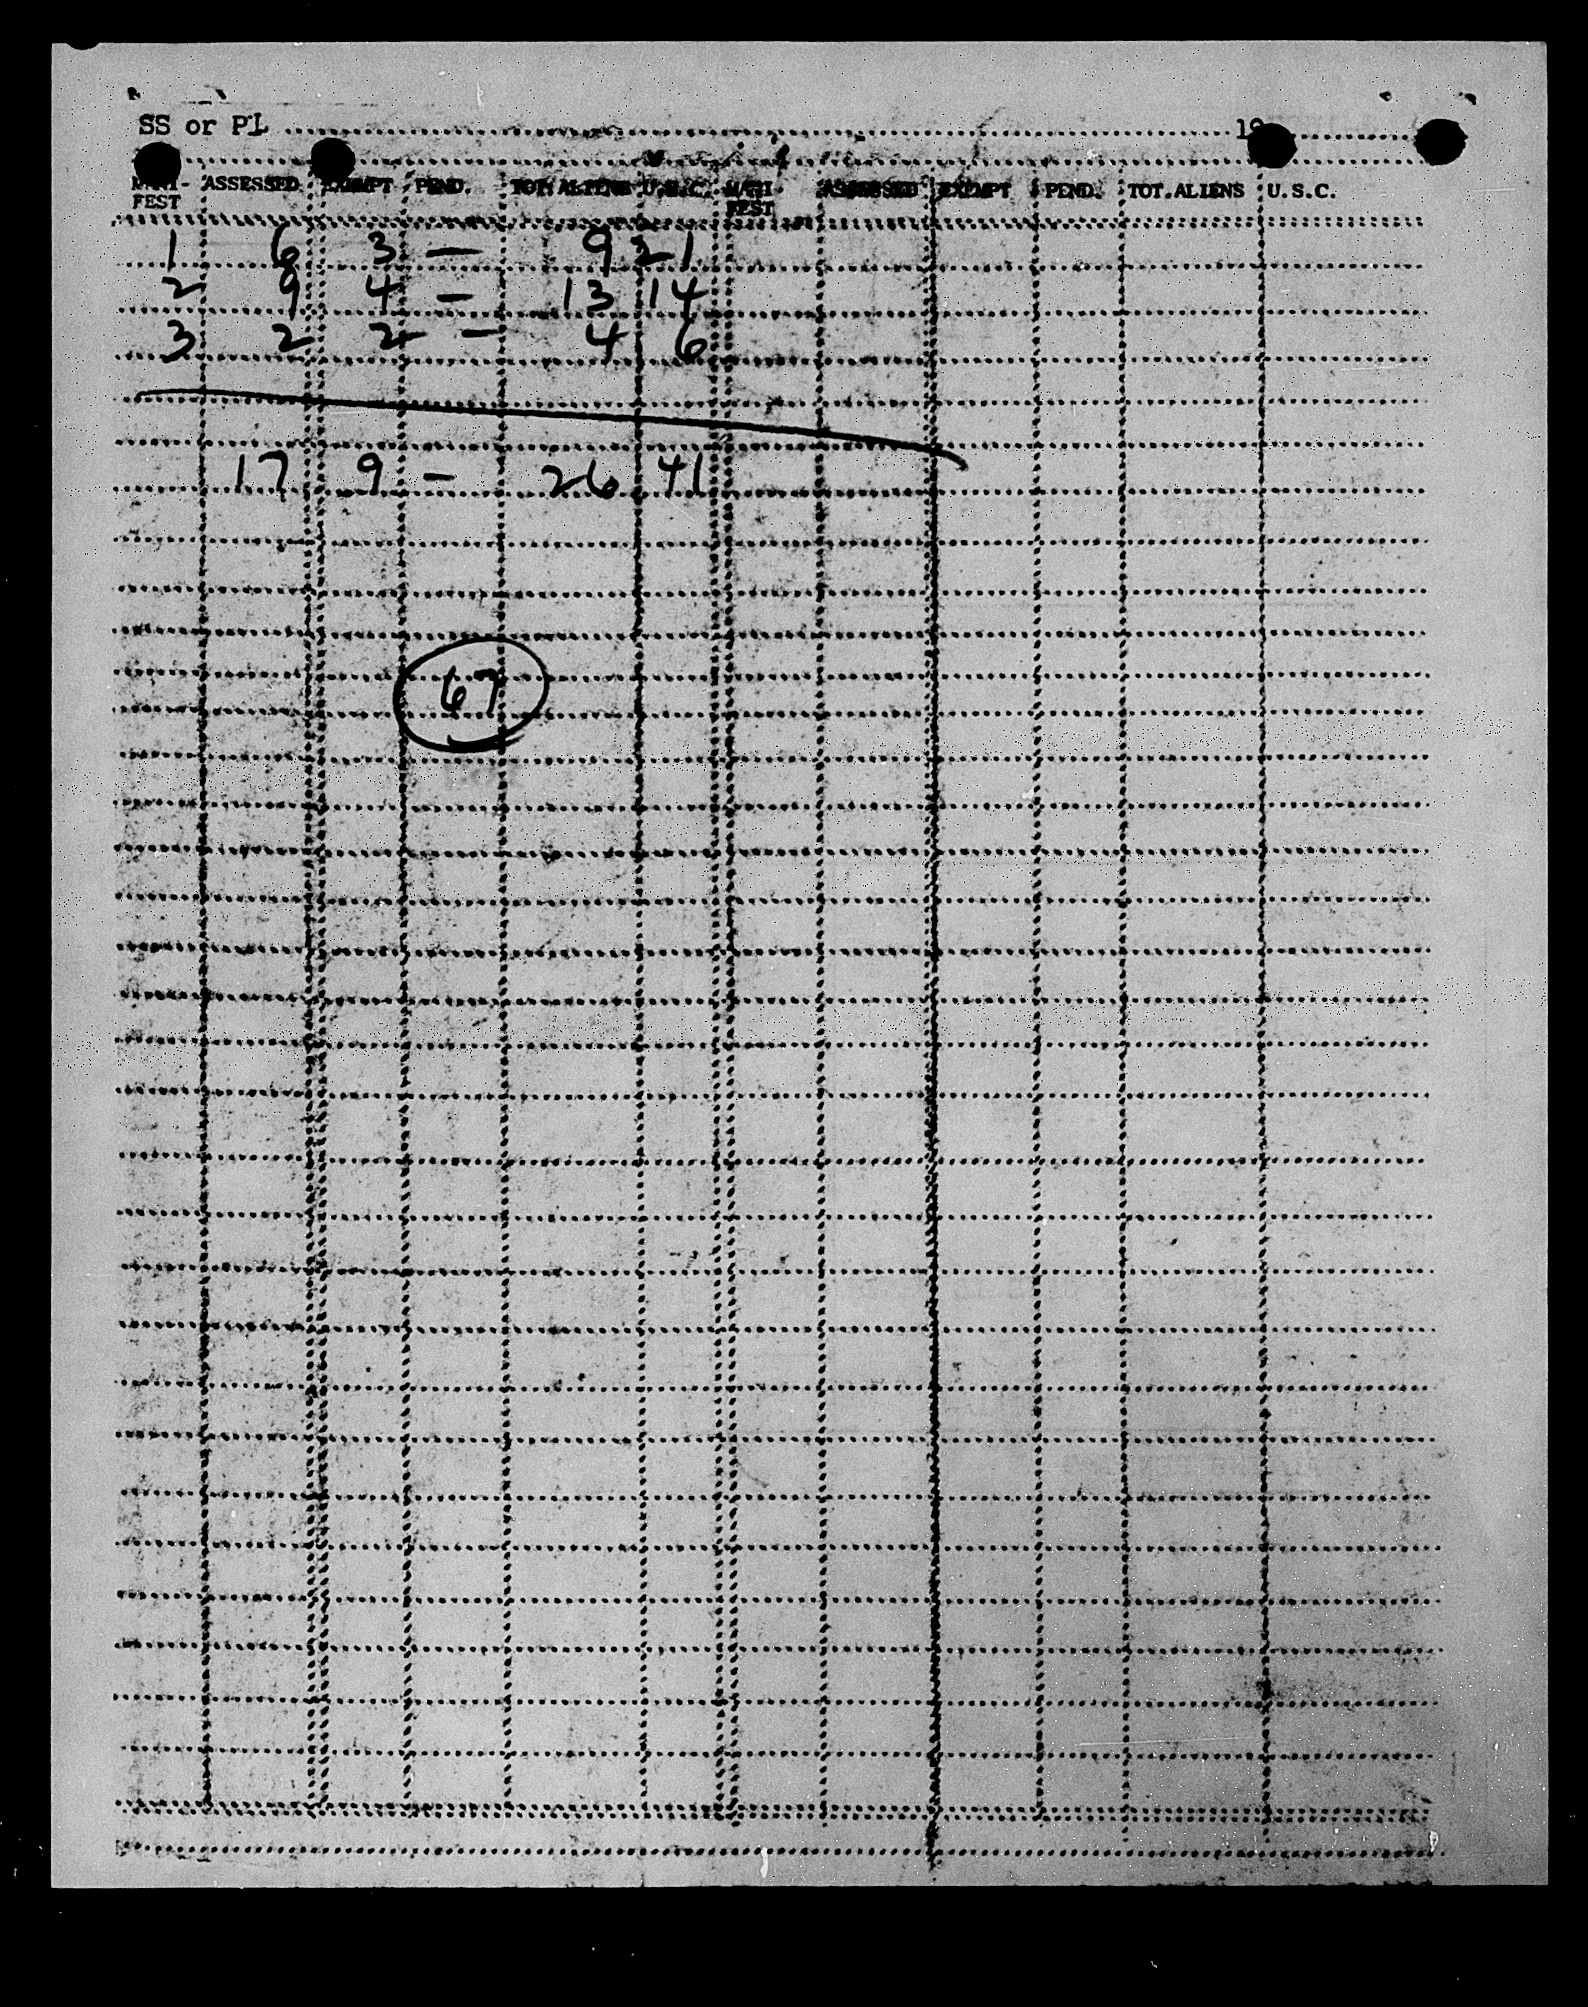 SS or Pl ................ 19
MANI- ASSESSED EXEMPT PEND. TOT. ALIENS U.S.C. MANI- ASSESSED EXEMPT PEND. TOT.ALIENS U.S.C.
FEST FEST
1 6 3 — 9 21
2 9 4 — 13 14
3 2 2 — 4 6
17 9 — 26 41
67